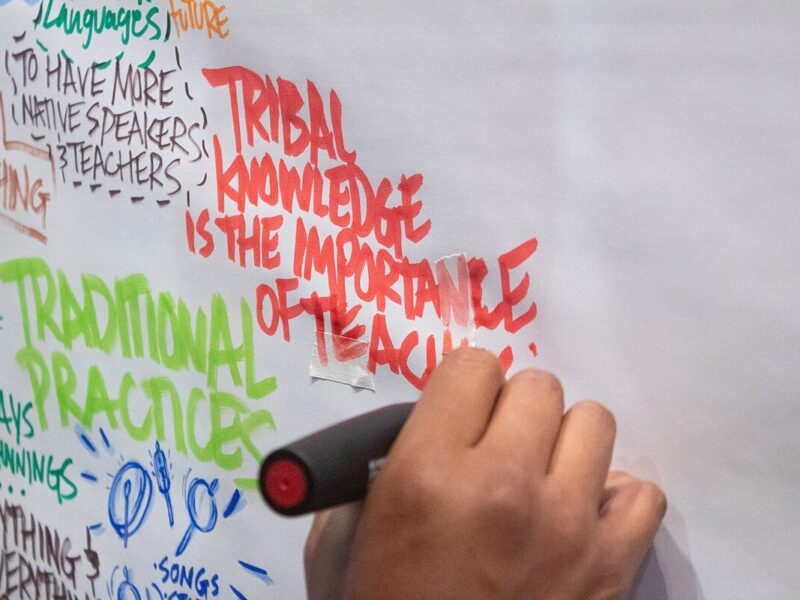 Languages,
FUTURE
TO HAVE MORE
NATIVE SPEAKERS
& TEACHERS
HING
TRIBAL
KNOWLEDGE
IS THE IMPORTANCE
OF TEACHI
TRADITIONAL
PRACTICES
AYS
NNINGS
YTHING &
VERYTHIN
SONGS